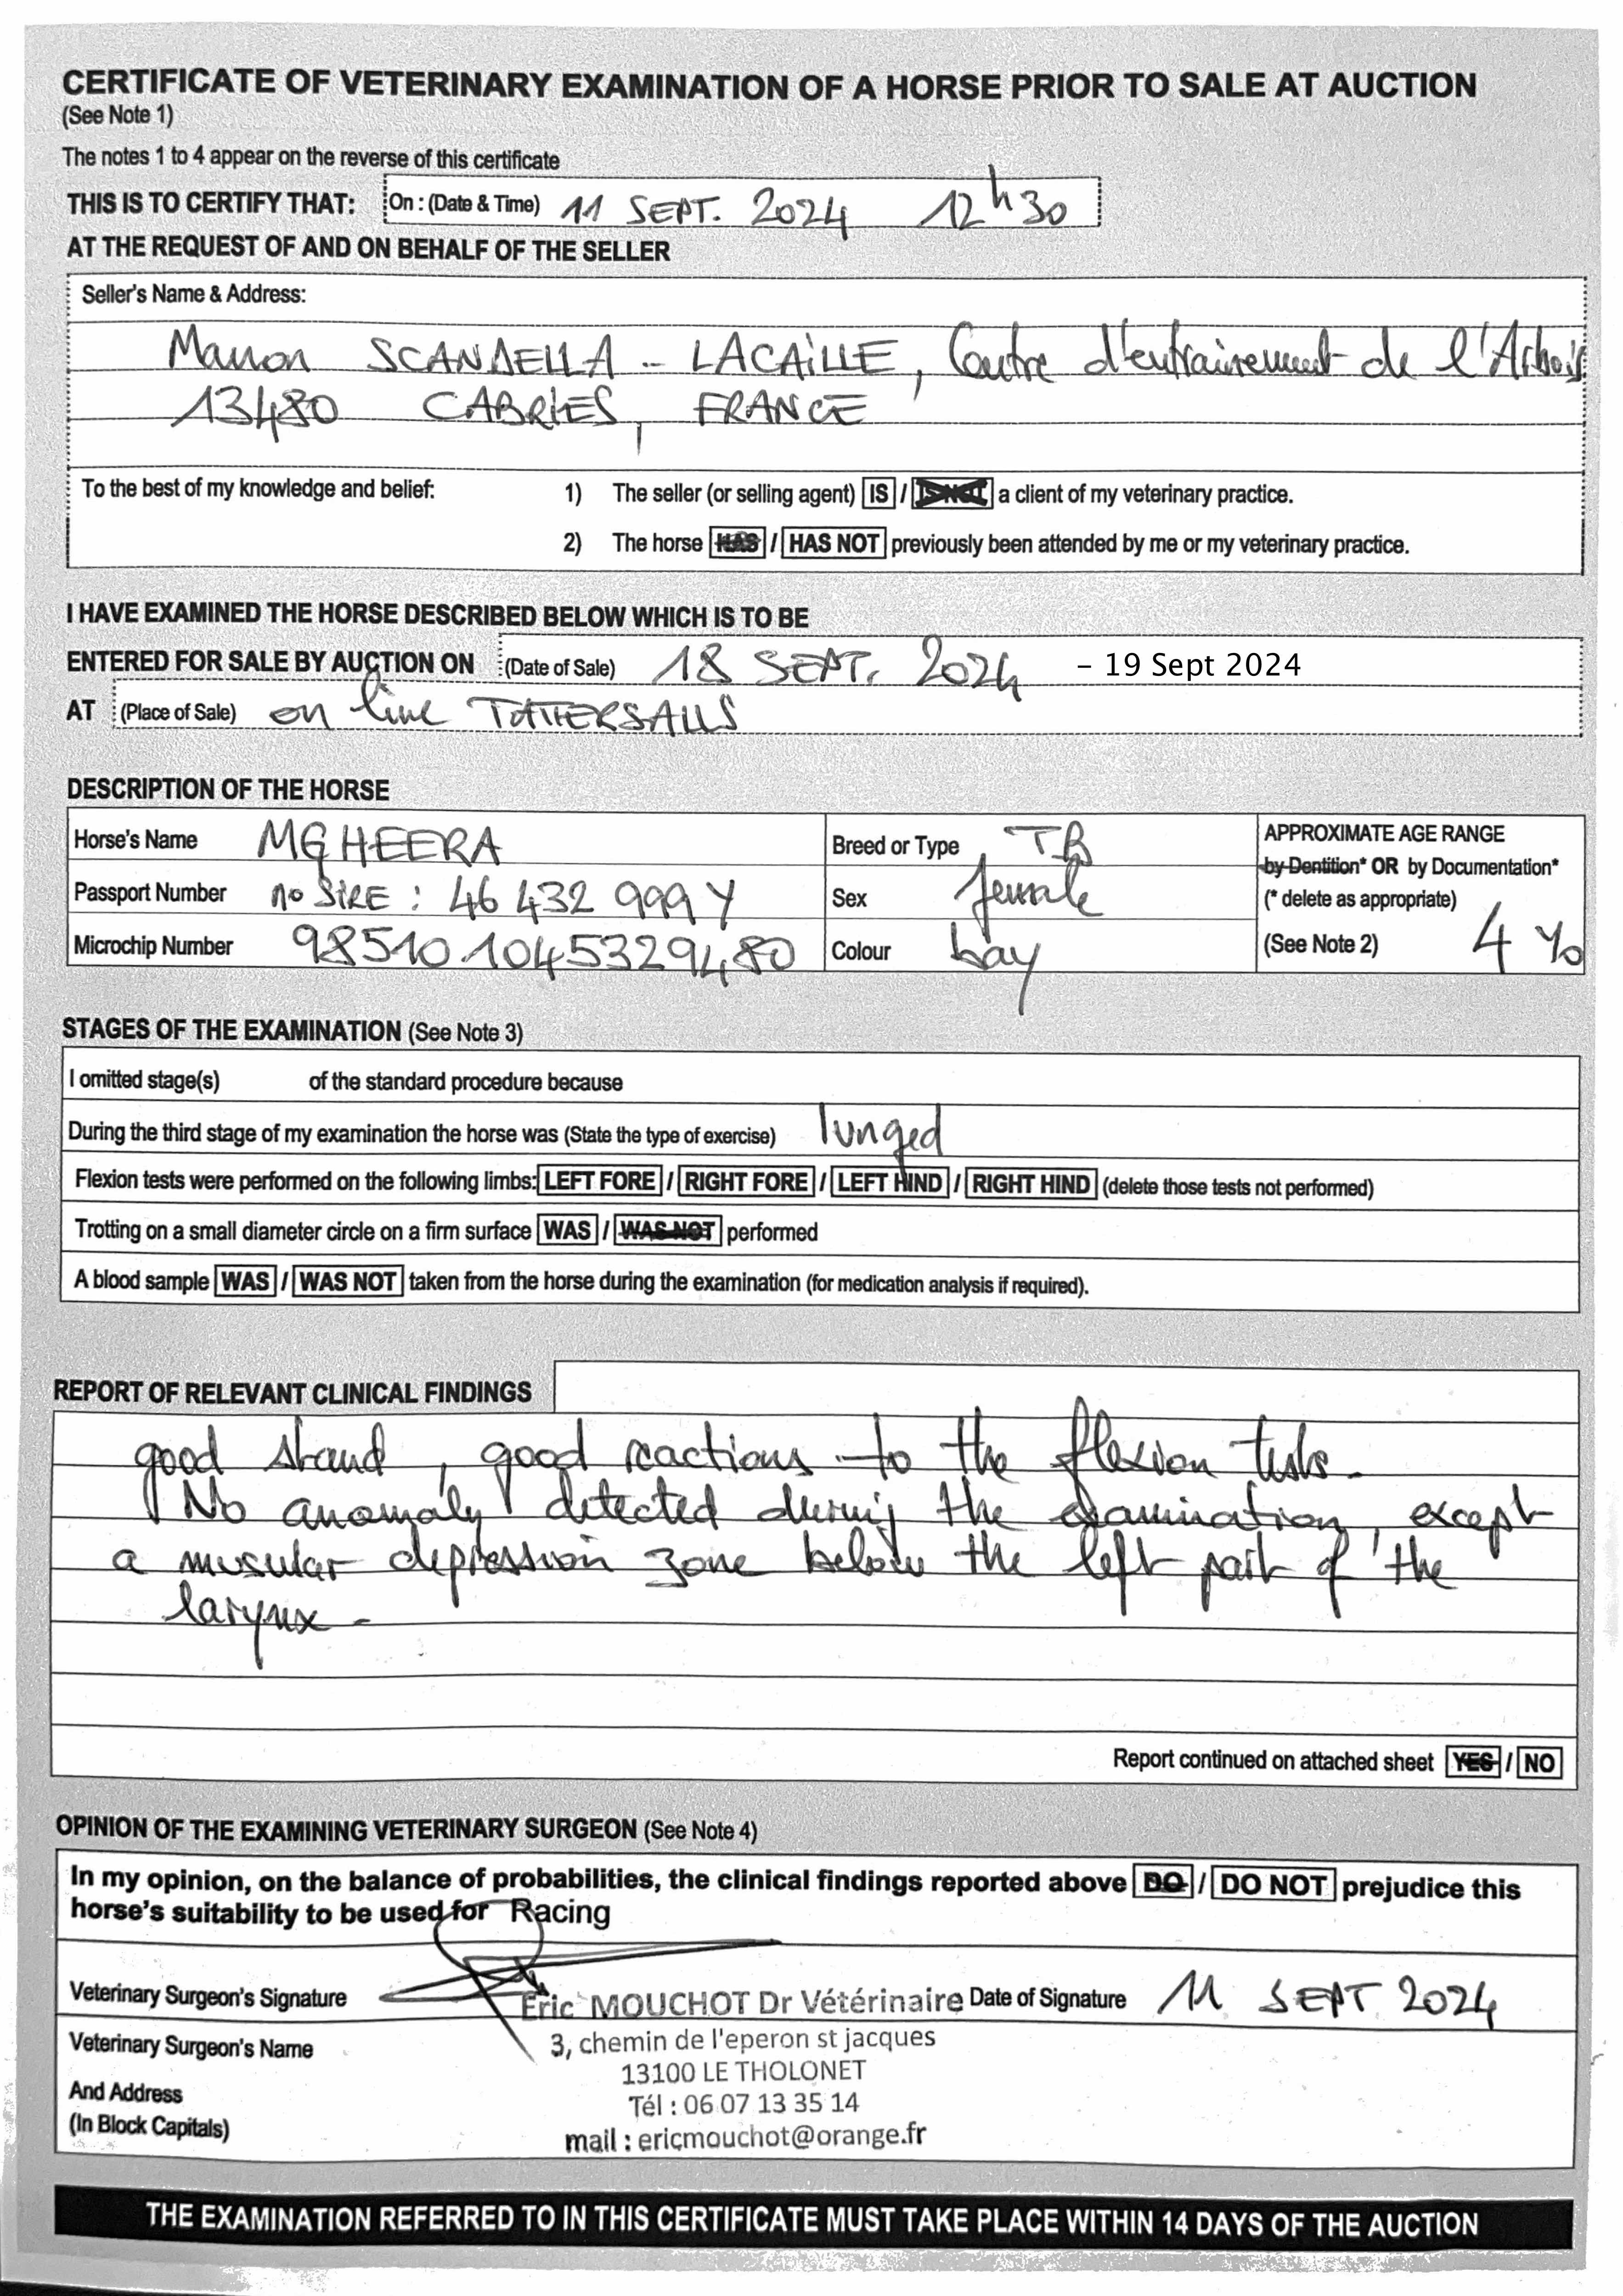 CERTIFICATE OF VETERINARY EXAMINATION OF A HORSE PRIOR TO SALE AT AUCTION
(See Note 1)
The notes 1 to 4 appear on the reverse of this certificate
THIS IS TO CERTIFY THAT: On : (Date & Time) 11 SEPT. 2024 12h30
AT THE REQUEST OF AND ON BEHALF OF THE SELLER
Seller's Name & Address:
Manon SCANDELLA - LACAILLE, Centre d'entrainement de l'Arbois
13480 CABRIES, FRANCE
To the best of my knowledge and belief: 1) The seller (or selling agent) IS / IS NOT a client of my veterinary practice.
2) The horse HAS / HAS NOT previously been attended by me or my veterinary practice.
I HAVE EXAMINED THE HORSE DESCRIBED BELOW WHICH IS TO BE
ENTERED FOR SALE BY AUCTION ON (Date of Sale) 18 SEPT. 2024 – 19 Sept 2024
AT (Place of Sale) on line TATTERSALLS
DESCRIPTION OF THE HORSE
Horse's Name MGHEERA Breed or Type TB APPROXIMATE AGE RANGE
by Dentition* OR by Documentation*
Passport Number no SIRE : 46 432 999 Y Sex female (* delete as appropriate)
Microchip Number 985101045329480 Colour bay (See Note 2) 4 yo
STAGES OF THE EXAMINATION (See Note 3)
I omitted stage(s) of the standard procedure because
During the third stage of my examination the horse was (State the type of exercise) lunged
Flexion tests were performed on the following limbs: LEFT FORE / RIGHT FORE / LEFT HIND / RIGHT HIND (delete those tests not performed)
Trotting on a small diameter circle on a firm surface WAS / WAS NOT performed
A blood sample WAS / WAS NOT taken from the horse during the examination (for medication analysis if required).
REPORT OF RELEVANT CLINICAL FINDINGS
good stand, good reactions to the flexion tests.
No anomaly detected during the examination, except
a muscular depression zone below the left part of the
larynx -
Report continued on attached sheet YES / NO
OPINION OF THE EXAMINING VETERINARY SURGEON (See Note 4)
In my opinion, on the balance of probabilities, the clinical findings reported above DO / DO NOT prejudice this
horse's suitability to be used for Racing
Veterinary Surgeon's Signature Eric MOUCHOT Dr Vétérinaire Date of Signature 11 SEPT 2024
Veterinary Surgeon's Name 3, chemin de l'eperon st jacques
13100 LE THOLONET
And Address Tél : 06 07 13 35 14
(In Block Capitals) mail : ericmouchot@orange.fr
THE EXAMINATION REFERRED TO IN THIS CERTIFICATE MUST TAKE PLACE WITHIN 14 DAYS OF THE AUCTION